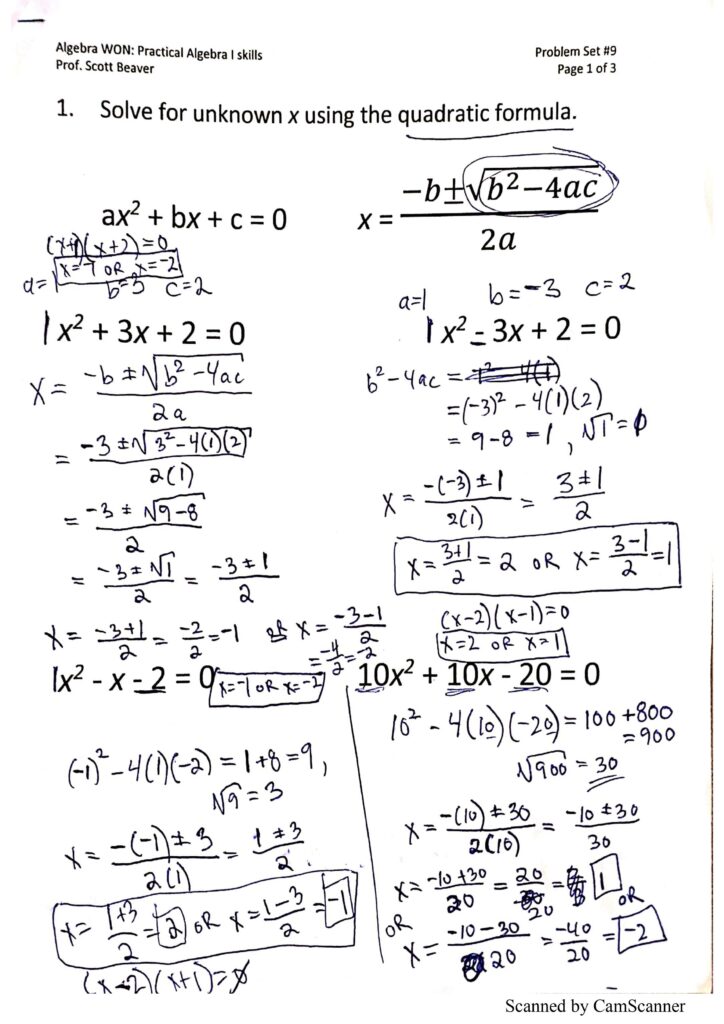 Algebra WON: Practical Algebra I skills
Prof. Scott Beaver
Problem Set #9
Page 1 of 3
1. Solve for unknown x using the quadratic formula.
ax² + bx + c = 0
x = (-b±√(b²-4ac))/(2a)
(x+1)(x+2)=0
x=-1 OR x=-2
a=1 b=3 c=2
1x² + 3x + 2 = 0
X = (-b ± √(b²-4ac))/(2a)
= (-3 ± √(3²-4(1)(2)))/(2(1))
= (-3 ± √(9-8))/2
= (-3 ± √1)/2 = (-3 ± 1)/2
X = (-3+1)/2 = -2/2 = -1 OR X = (-3-1)/2
= -4/2 = -2
x=-1 OR x=-2
a=1 b=-3 c=2
1x² - 3x + 2 = 0
b²-4ac =
=(-3)² - 4(1)(2)
= 9-8 = 1, √1 =
X = (-(-3) ± 1)/(2(1)) = (3 ± 1)/2
X = (3+1)/2 = 2 OR X = (3-1)/2 = 1
(x-2)(x-1)=0
X=2 OR X=1
1x² - x - 2 = 0
(-1)² - 4(1)(-2) = 1+8 = 9,
√9 = 3
X = (-(-1) ± 3)/(2(1)) = (1 ± 3)/2
X = (1+3)/2 = 2 OR X = (1-3)/2 = -1
(x-2)(x+1)=0
10x² + 10x - 20 = 0
10² - 4(10)(-20) = 100 + 800
= 900
√900 = 30
X = (-(10) ± 30)/(2(10)) = (-10 ± 30)/30
X = (-10+30)/20 = 20/20 = 1
OR
OR
X = (-10-30)/20 = -40/20 = -2
Scanned by CamScanner